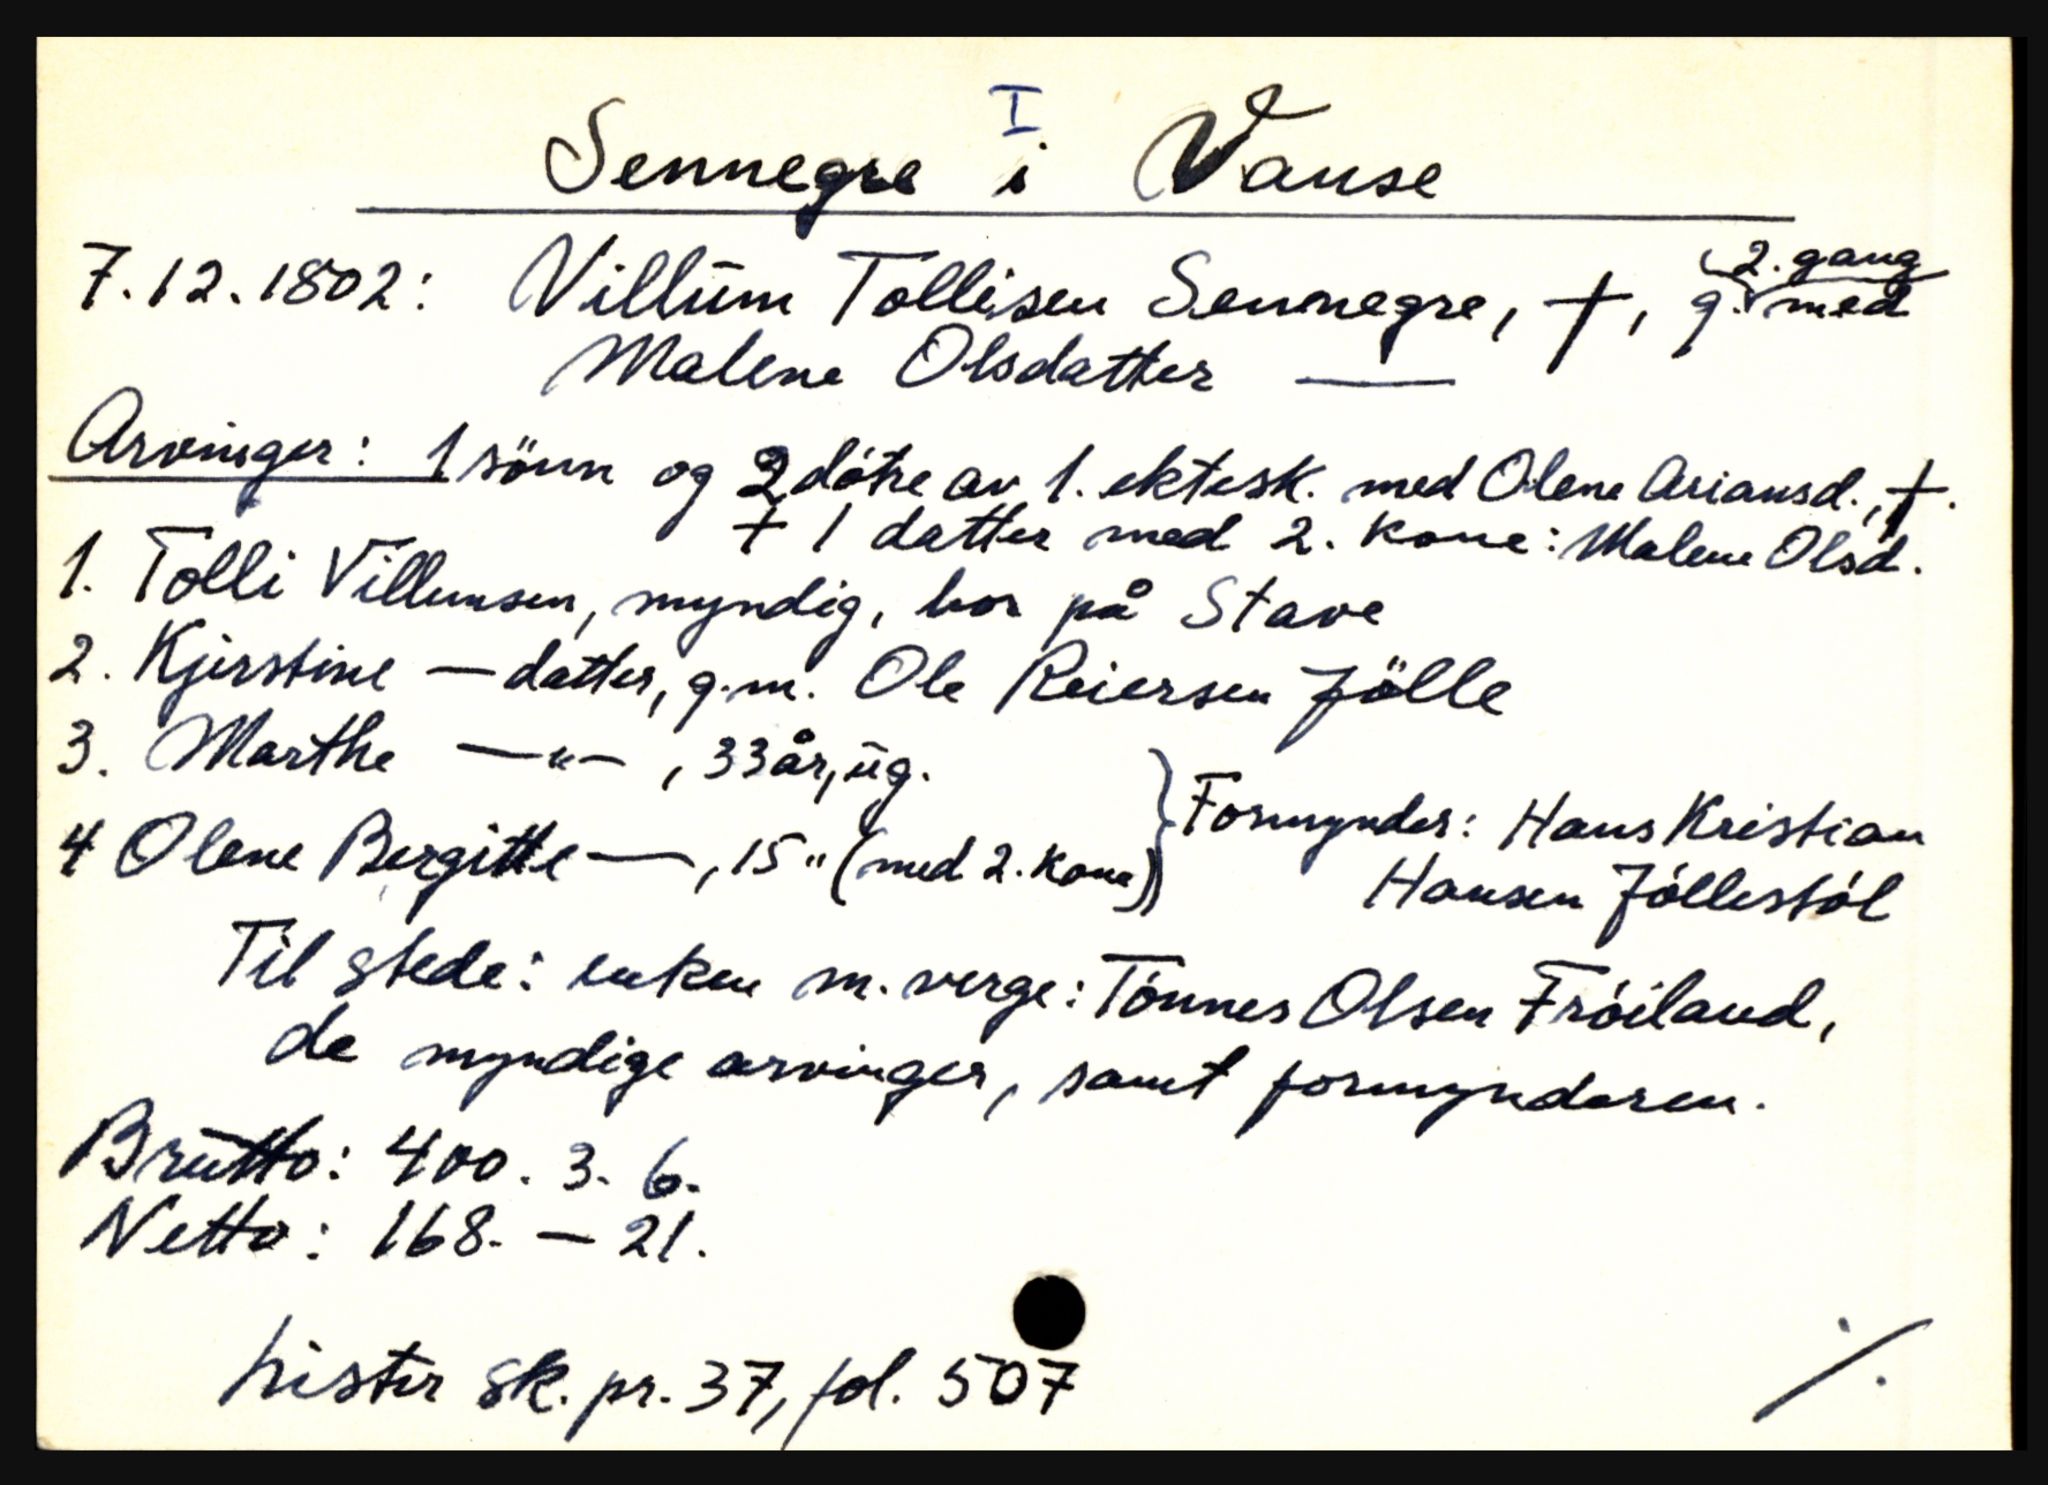 I
Sennegre i Vanse
7.12.1802: Villum Tollisen Sennegre, †, g. 2. gang med
Malene Olsdatter —
Arvinger: 1 sönn og 2 døtre av 1. ektesk. med Olene Ariansd., †.
+ 1 datter med 2. kone: Malene Olsd.
1. Tolli Villumsen, myndig, bor på Stave
2. Kjerstine — datter, g.m. Ole Reiersen Jölle
3. Marthe —"— , 33 år, ug.
4 Olene Bergitte — , 15 " (med 2. kone)
} Formynder: Hans Kristian
Hansen Jöllestöl
Til stede: enken m. verge: Tönnes Olsen Fröiland,
de myndige arvinger, samt formynderen.
Brutto: 400. 3. 6.
Netto: 168. — 21.
Lister sk. pr. 37, fol. 507
./.